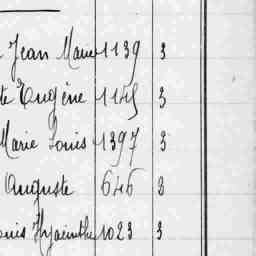 Jean Marie 1139 3
te Eugène 1145 3
Marie Louis 1397 3
Auguste 646 3
ouis Hyacinthe 1023 3